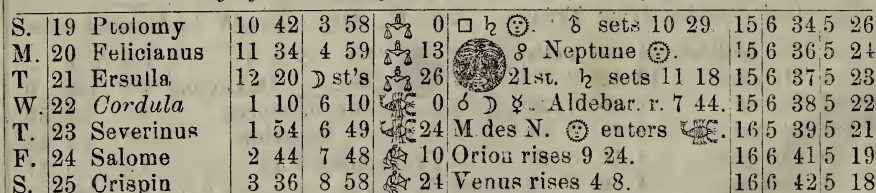 S. 19 Ptolomy 10 42 3 58 ♎ 0 □ ♄ ☉. ♁ sets 10 29. 15 6 34 5 26
M. 20 Felicianus 11 34 4 59 ♎ 13 ☍ Neptune ☉. 15 6 36 5 24
T 21 Ersulla 12 20 ☽ st's ♎ 26 21st. ♄ sets 11 18 15 6 37 5 23
W. 22 Cordula 1 10 6 10 ♏ 0 ☌ ☽ ☿. Aldebar. r. 7 44. 15 6 38 5 22
T. 23 Severinus 1 54 6 49 ♏ 24 M des N. ☉ enters ♏. 16 5 39 5 21
F. 24 Salome 2 44 7 48 ♐ 10 Orion rises 9 24. 16 6 41 5 19
S. 25 Crispin 3 36 8 58 ♐ 24 Venus rises 4 8. 16 6 42 5 18